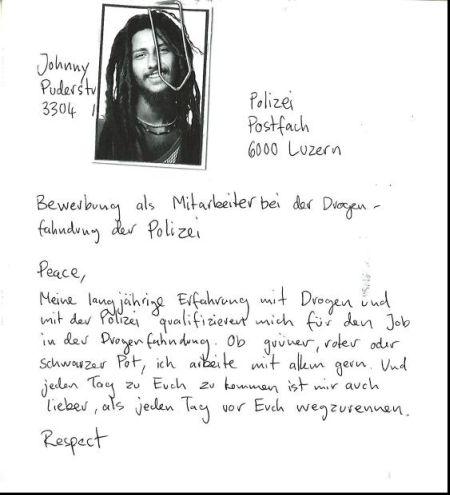 Johnny
Puderstr
3304
Polizei
Postfach
6000 Luzern
Bewerbung als Mitarbeiter bei der Drogen-
fahndung der Polizei
Peace,
Meine langjährige Erfahrung mit Drogen und
mit der Polizei qualifizieren mich für den Job
in der Drogenfahndung. Ob grüner, roter oder
schwarzer Pot, ich arbeite mit allem gern. Und
jeden Tag zu Euch zu kommen ist mir auch
lieber, als jeden Tag vor Euch wegzurennen.
Respect